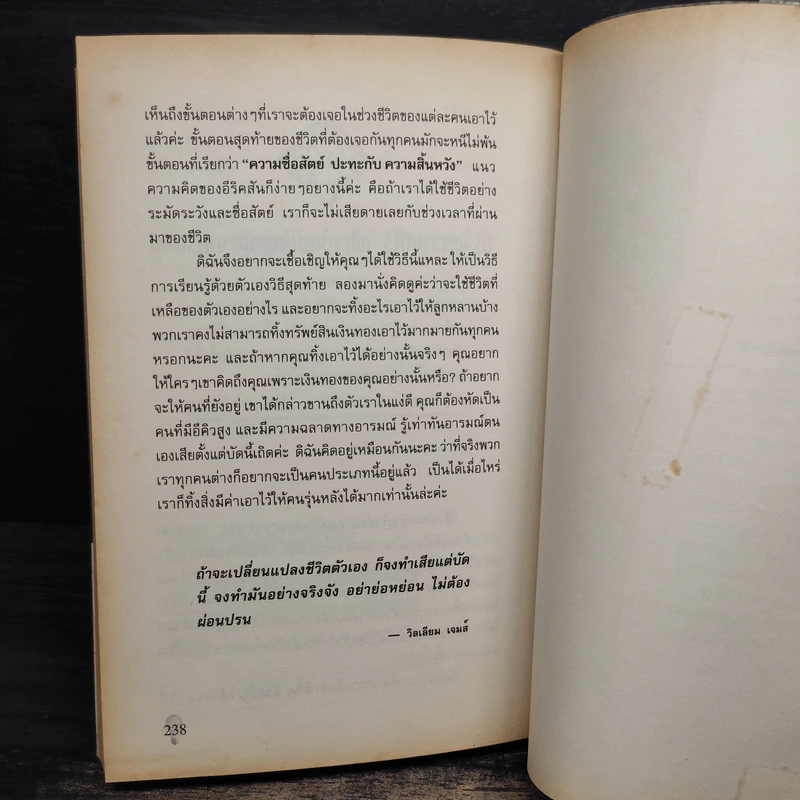 เห็นถึงขั้นตอนต่างๆที่เราจะต้องเจอในช่วงชีวิตของแต่ละคนเอาไว้
แล้วค่ะ ขั้นตอนสุดท้ายของชีวิตที่ต้องเจอกันทุกคนมักจะหนีไม่พ้น
ขั้นตอนที่เรียกว่า “ความซื่อสัตย์ ปะทะกับ ความสิ้นหวัง” แนว
ความคิดของอีริคสันก็ง่ายๆอย่างนี้ค่ะ คือถ้าเราได้ใช้ชีวิตอย่าง
ระมัดระวังและซื่อสัตย์ เราก็จะไม่เสียดายเลยกับช่วงเวลาที่ผ่าน
มาของชีวิต
ดิฉันจึงอยากจะเชื้อเชิญให้คุณๆได้ใช้วิธีนี้แหละ ให้เป็นวิธี
การเรียนรู้ด้วยตัวเองวิธีสุดท้าย ลองมานั่งคิดดูค่ะว่าจะใช้ชีวิตที่
เหลือของตัวเองอย่างไร และอยากจะทิ้งอะไรเอาไว้ให้ลูกหลานบ้าง
พวกเราคงไม่สามารถทิ้งทรัพย์สินเงินทองเอาไว้มากมายกันทุกคน
หรอกนะคะ และถ้าหากคุณทิ้งเอาไว้ได้อย่างนั้นจริงๆ คุณอยาก
ให้ใครๆเขาคิดถึงคุณเพราะเงินทองของคุณอย่างนั้นหรือ? ถ้าอยาก
จะให้คนที่ยังอยู่ เขาได้กล่าวขานถึงตัวเราในแง่ดี คุณก็ต้องหัดเป็น
คนที่มีอีคิวสูง และมีความฉลาดทางอารมณ์ รู้เท่าทันอารมณ์ตน
เองเสียตั้งแต่บัดนี้เถิดค่ะ ดิฉันคิดอยู่เหมือนกันนะคะ ว่าที่จริงพวก
เราทุกคนต่างก็อยากจะเป็นคนประเภทนี้อยู่แล้ว เป็นได้เมื่อไหร่
เราก็ทิ้งสิ่งมีค่าเอาไว้ให้คนรุ่นหลังได้มากเท่านั้นล่ะค่ะ
ถ้าจะเปลี่ยนแปลงชีวิตตัวเอง ก็จงทำเสียแต่บัด
นี้ จงทำมันอย่างจริงจัง อย่าย่อหย่อน ไม่ต้อง
ผ่อนปรน
— วิลเลียม เจมส์
238